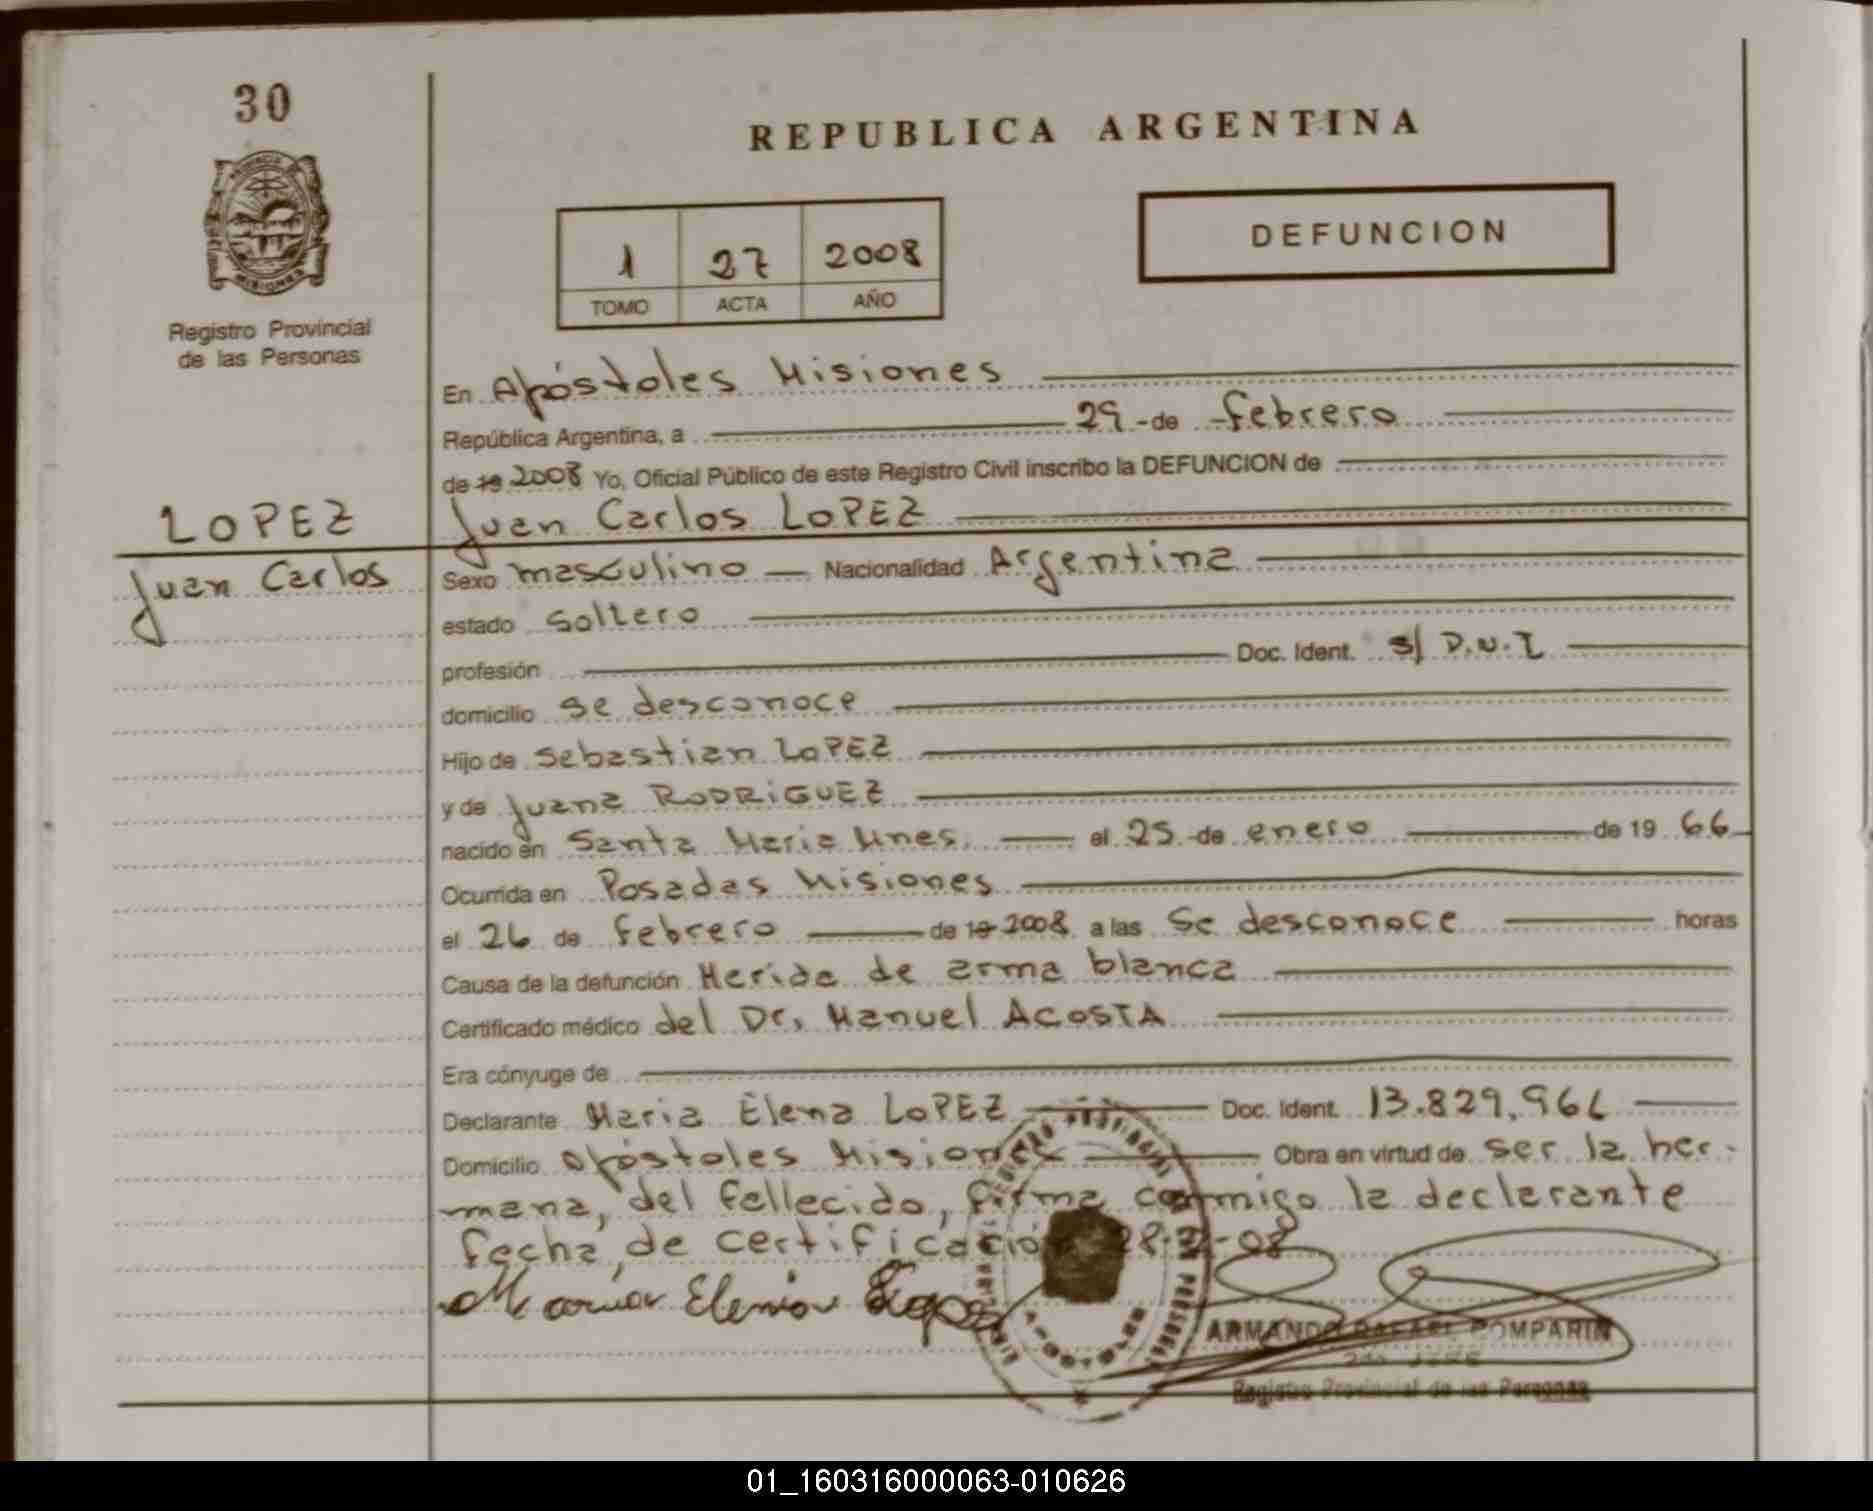 30
REPUBLICA ARGENTINA
1 27 2008
TOMO ACTA AÑO
DEFUNCION
PROVINCIA DE
MISIONES
Registro Provincial
de las Personas
En Apóstoles Misiones
República Argentina, a 29 de febrero
de 19 2008 Yo, Oficial Público de este Registro Civil inscribo la DEFUNCION de
LOPEZ
Juan Carlos
Juan Carlos LOPEZ
Sexo masculino Nacionalidad Argentina
estado Soltero
profesión Doc. Ident. s/ D.N.I
domicilio se desconoce
Hijo de Sebastian LOPEZ
y de Juana RODRIGUEZ
nacido en Santa Maria Mnes. el 25 de enero de 19 66
Ocurrida en Posadas Misiones
el 26 de febrero de 19 2008 a las Se desconoce horas
Causa de la defunción Herida de arma blanca
Certificado médico del Dr. Manuel ACOSTA
Era cónyuge de
Declarante Maria Elena LOPEZ Doc. Ident. 13.829.966
Domicilio Apóstoles Misiones Obra en virtud de ser la her-
mana, del fallecido, firma conmigo la declarante
fecha de certificación 28-2-08
Maria Elena Lopez
ARMANDO RAFAEL COMPARIN
2do JEFE
Registro Provincial de las Personas
APOSTOLES
01_160316000063-010626